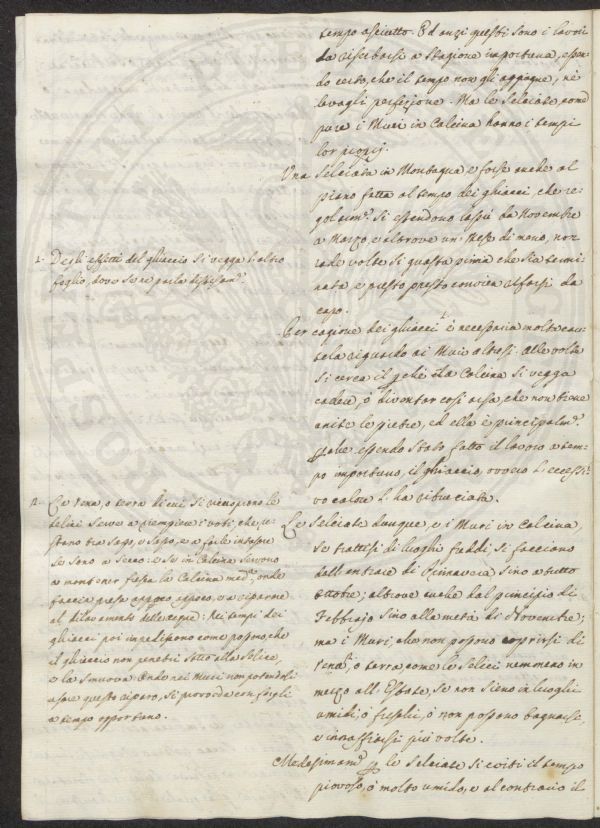 tempo asciutto. Ed anzi questi sono i lavori
da riserbarsi a stagione importuna, essen-
do certo, che il tempo non gli oppone, nè
levagli perfezione. Ma le Selciate, non
pure i Muri in Calcina hanno i tempi
lor proprj.
Una Selciata in Montagna, e forse anche al
piano fatta al tempo dei ghiacci, che re-
golarm.e si estendono lassù da Novembre
a Marzo, e altrove un Mese di meno, non
rade volte si guasta prima che sia termi-
nata e presto presto convien rifarsi da
capo.
1. Degli effetti del ghiaccio si vegga l'altro
foglio dove se ne parla
Per cagione dei ghiacci 1 è necessaria molta cau-
tela riguardo ai Muri altresì. Alle volte
si cerca il perchè la Calcina si vegga
cadere, ò diventar così arsa, che non tiene
unite le pietre, ed ella è principalm.e
perchè essendo stato fatto il lavoro a tem-
po importuno, il ghiaccio, ovvero l'eccessi-
vo calore l'ha
2. La rena, o terra di cui si ricoprono le
selici serve a riempiere i voti, che re-
stano tra sasso, e sasso, e a farle
se sono a secco: e se in Calcina servono
a mantener fresca la Calcina med.a, onde
faccia presa appoco appoco, e a ripararne
al dilavamento delle acque: Nei tempi dei
ghiacci poi impediscono come possono, che
il ghiaccio non penetri sotto alla Selice,
e la smuova. Onde nei Muri non potendosi
usare questo riparo, si provveda con fargli
a tempo opportuno.
Le Selciate dunque, e i Muri in Calcina,
se trattisi di luoghi freddi, si facciano
dall'entrare di Primavera sino a tutto
Ottobre, altrove anche dal principio di
Febbrajo sino alla metà di Novembre;
ma i Muri, che non possono coprirsi di
rena 2, o terra, come le Selici nemmeno in
mezzo all'Estate, se non sieno in luoghi
umidi, ò freschi, ò non possano bagnarsi,
e innaffiarsi più volte.
Medesimam.e per le selciate si eviti il tempo
piovoso, ò molto umido, e al contrario il